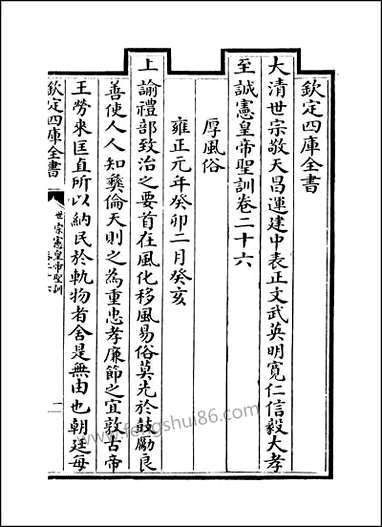 欽定四庫全書
大清世宗敬天昌運建中表正文武英明寬仁信毅大孝
至誠憲皇帝聖訓卷二十六
厚風俗
雍正元年癸卯二月癸亥
上諭禮部致治之要首在風化移風易俗莫先於鼓勵良
善使人人知彝倫天則之為重忠孝廉節之宜敦古帝
王勞來匡直所以納民於軌物者舍是無由也朝廷每
欽定四庫全書
世宗憲皇帝聖訓
卷二十六
一
www.fengshui86.com